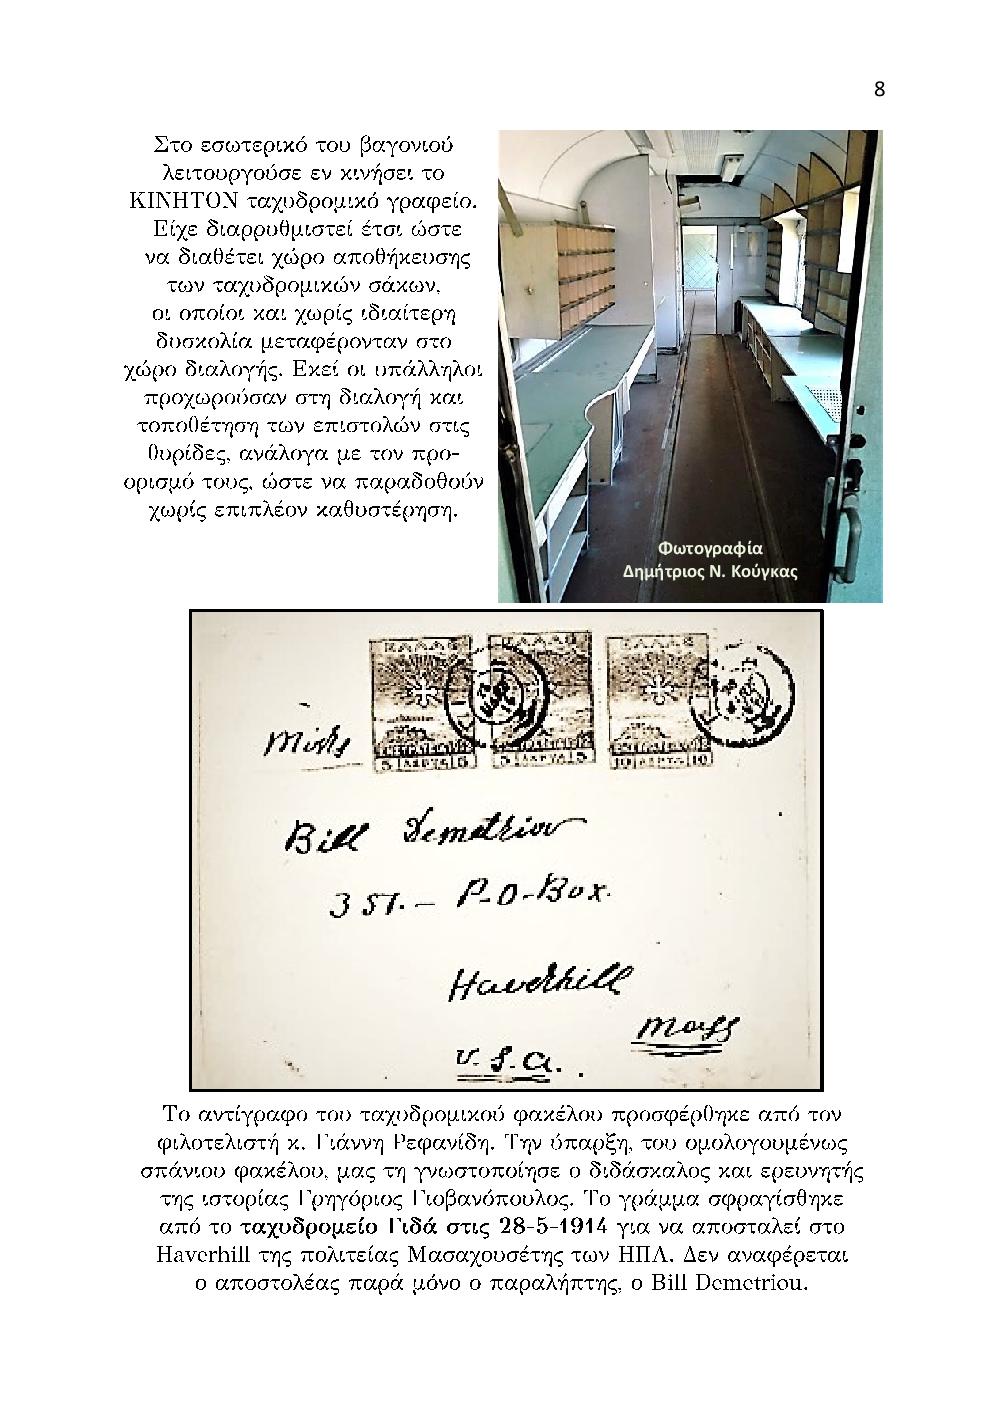 8
Στο εσωτερικό του βαγονιού
λειτουργούσε εν κινήσει το
ΚΙΝΗΤΟΝ ταχυδρομικό γραφείο.
Είχε διαρρυθμιστεί έτσι ώστε
να διαθέτει χώρο αποθήκευσης
των ταχυδρομικών σάκων,
οι οποίοι και χωρίς ιδιαίτερη
δυσκολία μεταφέρονταν στο
χώρο διαλογής. Εκεί οι υπάλληλοι
προχωρούσαν στη διαλογή και
τοποθέτηση των επιστολών στις
θυρίδες, ανάλογα με τον προ-
ορισμό τους, ώστε να παραδοθούν
χωρίς επιπλέον καθυστέρηση.
Φωτογραφία
Δημήτριος Ν. Κούγκας
ΕΛΛΑΣ ΕΛΛΑΣ ΕΛΛΑΣ
5 ΛΕΠΤΑ 5 5 ΛΕΠΤΑ 5 10 ΛΕΠΤΑ 10
Bill Demetriou
351.- P-O-Box.
Haverhill
Mass
U.S.A.
Το αντίγραφο του ταχυδρομικού φακέλου προσφέρθηκε από τον
φιλοτελιστή κ. Γιάννη Ρεφανίδη. Την ύπαρξη, του ομολογουμένως
σπάνιου φακέλου, μας τη γνωστοποίησε ο διδάσκαλος και ερευνητής
της ιστορίας Γρηγόριος Γιοβανόπουλος. Το γράμμα σφραγίσθηκε
από το ταχυδρομείο Γιδά στις 28-5-1914 για να αποσταλεί στο
Haverhill της πολιτείας Μασαχουσέτης των ΗΠΑ. Δεν αναφέρεται
ο αποστολέας παρά μόνο ο παραλήπτης, ο Bill Demetriou.